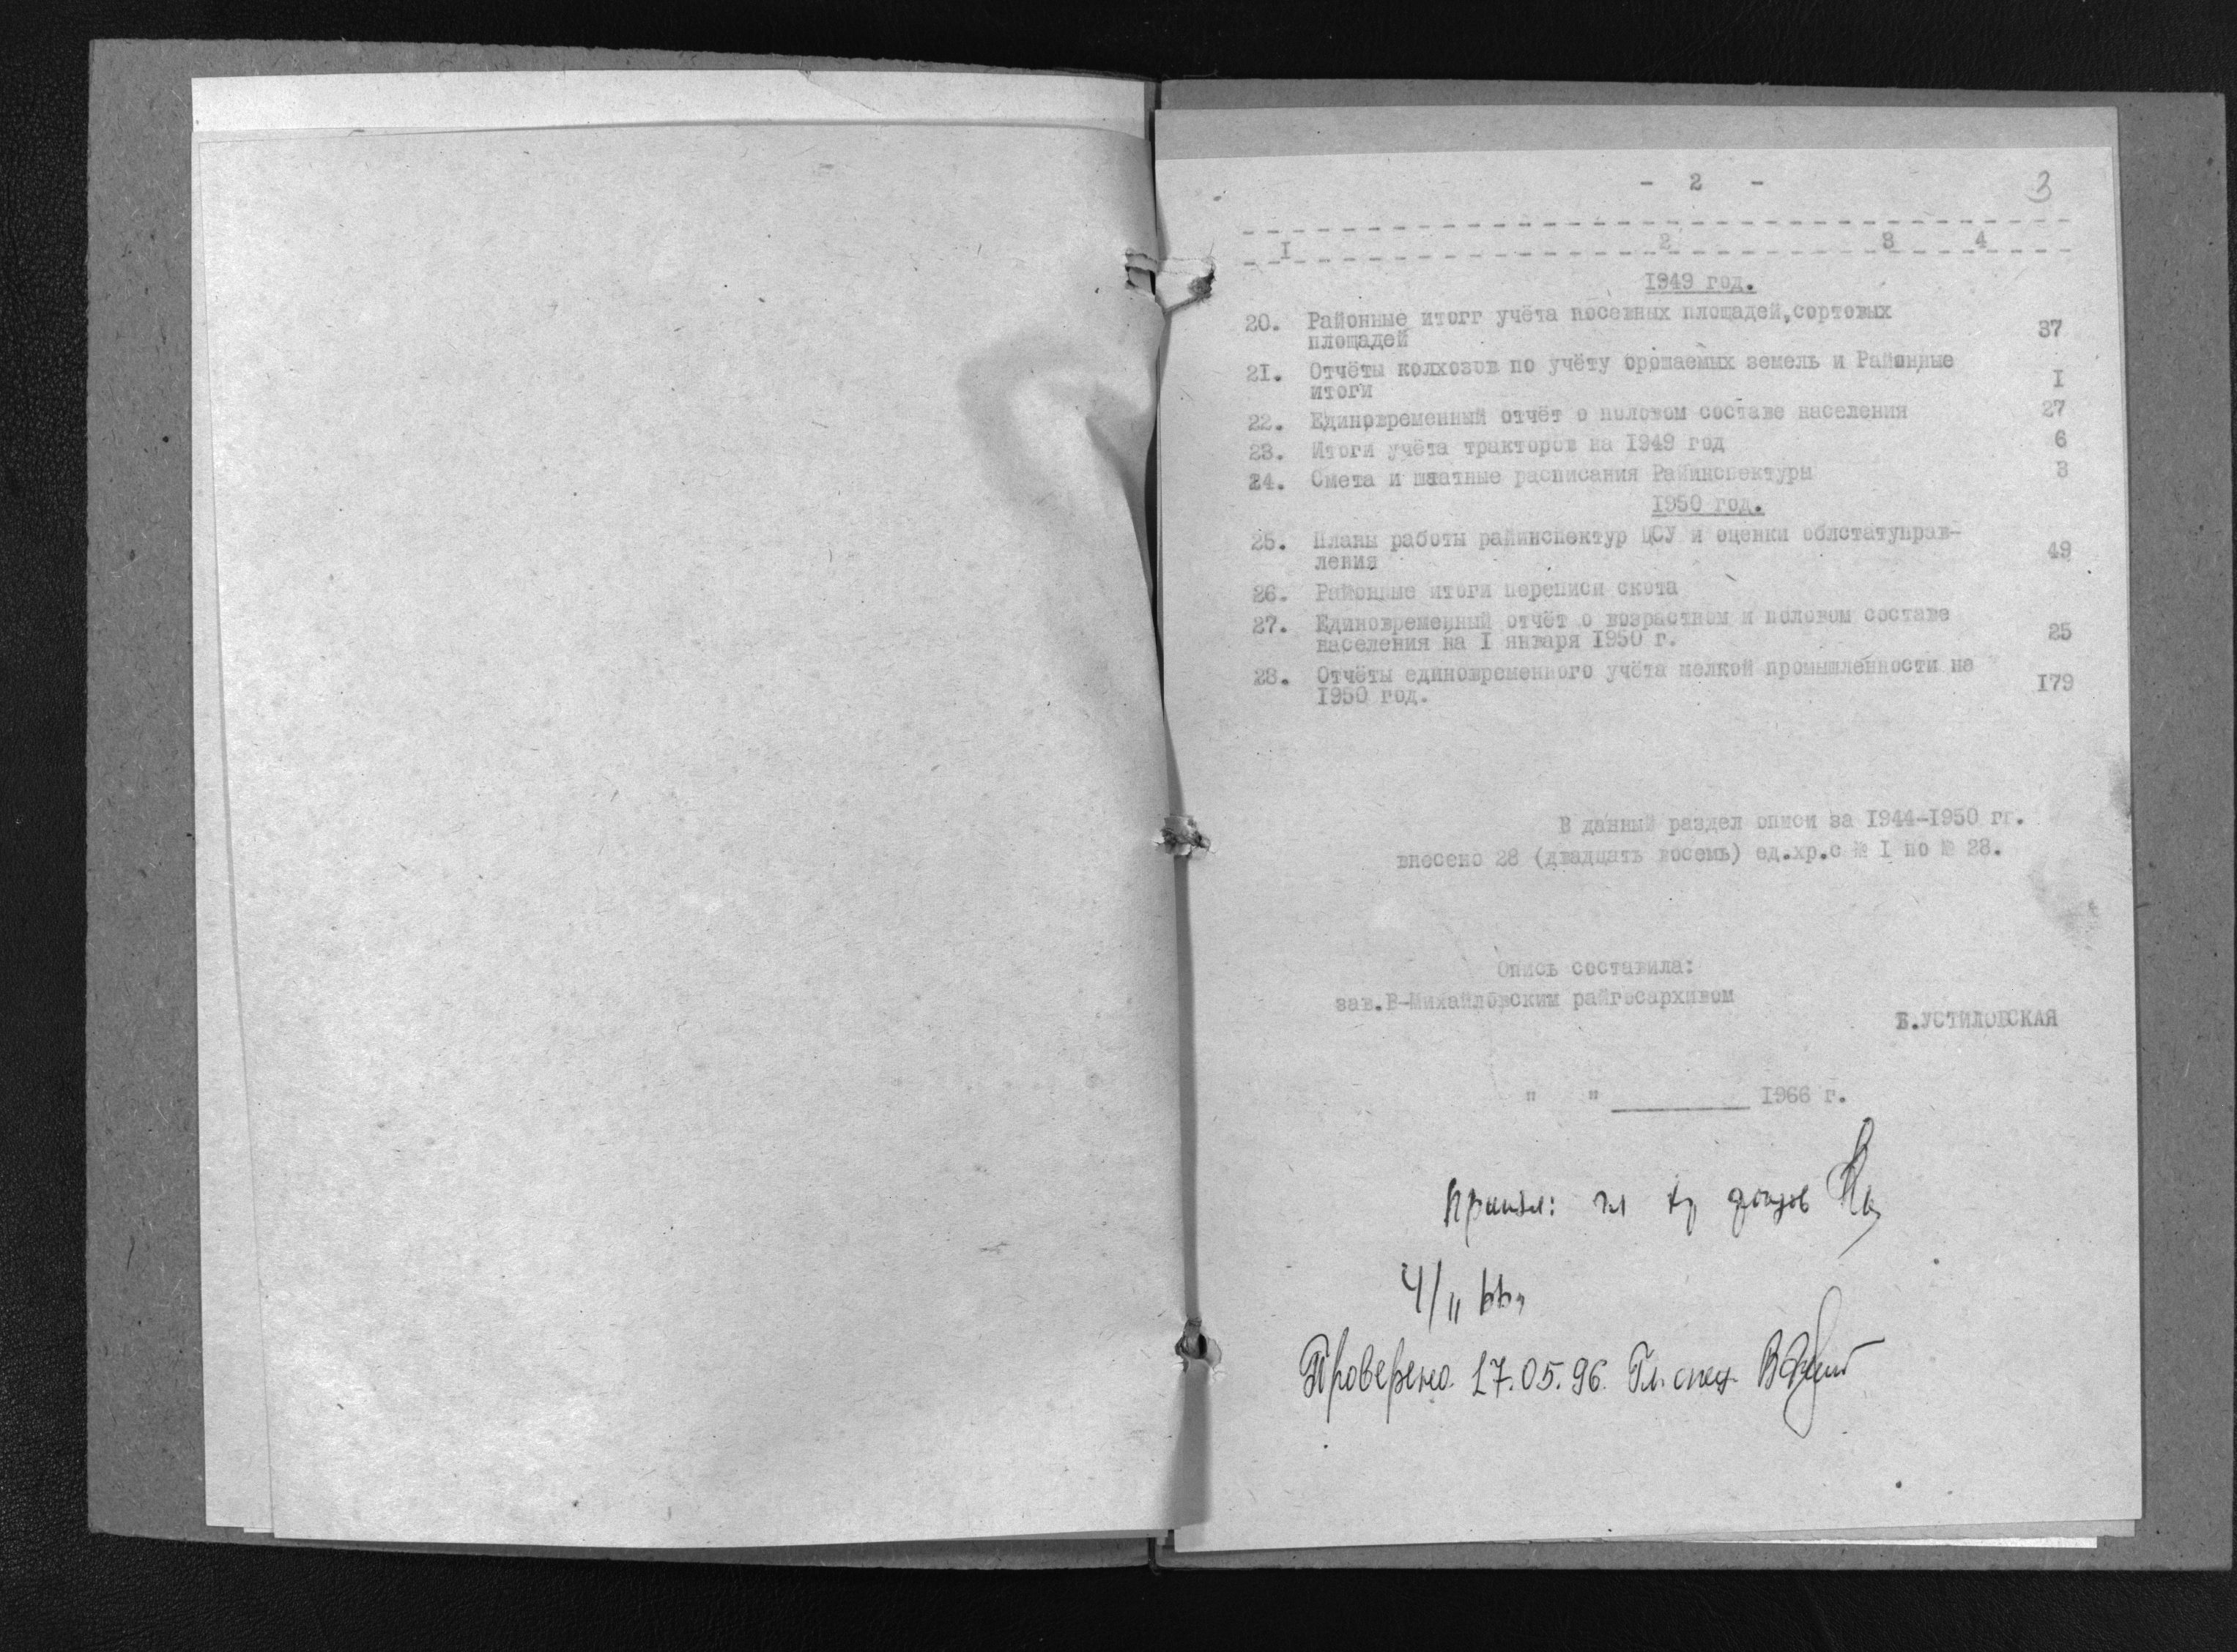 - 2 -
3
I 2 3 4
1949 год.
20. Районные итогг учёта посевных площадей,сортовых
площадей 37
21. Отчёты колхозов по учёту орошаемых земель и Районные
итоги I
22. Единовременный отчёт о половом составе населения 27
23. Итоги учёта тракторов на 1949 год 6
24. Смета и штатные расписания Райинспектуры 3
1950 год.
25. Планы работы райинспектур ЦСУ и оценки облстатуправ-
ления 49
26. Районные итоги переписи скота
27. Единовременный отчёт о возрастном и половом составе
населения на I января 1950 г. 25
28. Отчёты единовременного учёта мелкой промышленности на
1950 год. 179
В данный раздел описи за 1944-1950 гг.
внесено 28 (двадцать восемь) ед.хр.с № I по № 28.
Опись составила:
зав.В-Михайловским райгосархивом
Б.УСТИЛОВСКАЯ
" " ________ 1966 г.
4/II 66г
Проверено 17.05.96. Гл. спец.